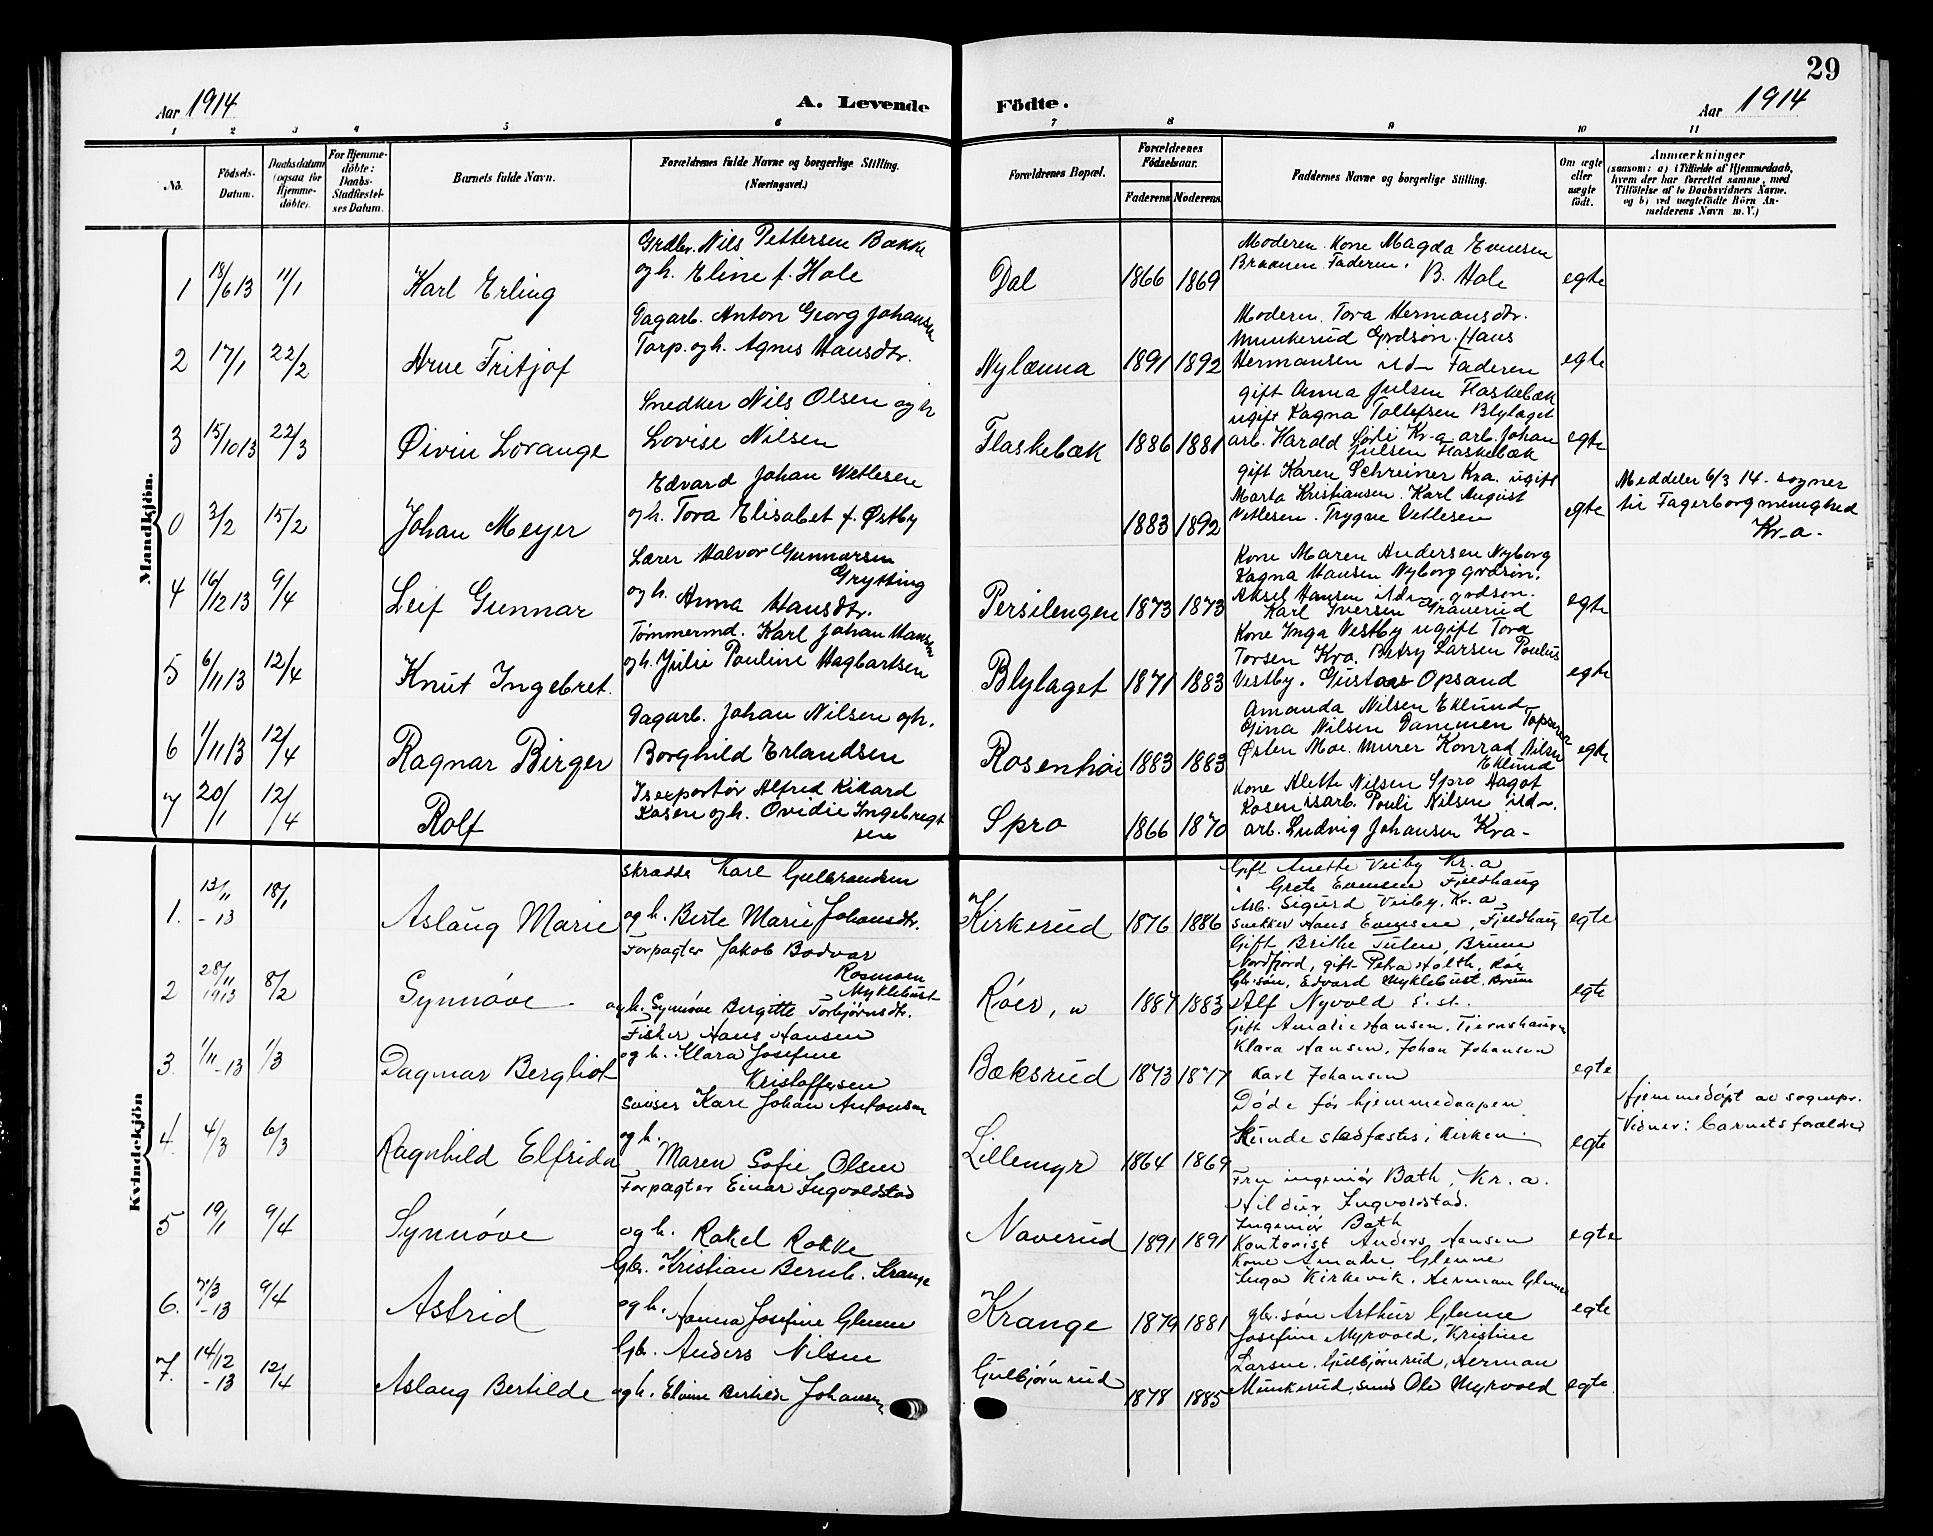 29
Aar 1914
A. Levende Födte.
Aar 1914
1 2 3 4 5 6 7 8 9 10 11
No.
Födsels-Datum.
Daabsdatum (ogsaa for Hjemme-döbte).
For Hjemme-döbte: Daabs-Stadfæstel-ses Datum.
Barnets fulde Navn.
Forældrenes fulde Navne og borgerlige Stilling. (Næringsvei.)
Forældrenes Bopæl.
Forældrenes Födselsaar.
Faderens Moderens
Faddernes Navne og borgerlige Stilling.
Om ægte eller uægte födt.
Anmærkninger
(saasom: a) i Tilfælde af Hjemmedaab, hvem der har forrettet samme, med Tilföielse af to Daabsvidners Navne, og b) ved uægtefödte Börn An-melderens Navn m. V.)
Mandkjön.
1 18/6 13 11/1 Karl Erling
Grdbr. Nils Pettersen Bakke
og h. Eline f. Hole
Dal 1866 1869
Moderen. Kone Magda Evensen
Braanen. Faderen. B. Hole
egte
2 17/1 22/2 Arne Fritjof
Dagarb. Anton Georg Johansen
Torp. og h. Agnes Hansdtr.
Nylænna 1891 1892
Moderen. Tora Hermansdtr.
Munkerud Grdsøn. Hans
Hermansen ild- Faderen
egte
3 15/10 13 22/3 Øivin Lorange
Snedker Nils Olsen og h
Lovise Nilsen
Flaskebæk 1886 1881
gift Anna Julsen Flaskebæk
ugift Ragna Tollefsen Blylaget
arb. Harald Sørli Kr-a arb. Johan
Julsen Flaskebæk
egte
0 3/2 15/2 Johan Meyer
Edvard Johan Vetlesen
og h. Tora Elisabet f. Østby
1883 1892
gift Karen Schreiner Kra. ugift
Marta Kristiansen. Karl August
Vetlesen. Trygve Vetlesen
egte
Meddelt 6/3 14. sogner
til Fagerborg menighed
Kr-a.
4 16/12 13 9/4 Leif Gunnar
Lærer Halvor Gunnarsen
Grytting
og h. Anna Hansdtr.
Persilengen 1873 1873
Kone Maren Andersen Nyborg
Ragna Hansen Nyborg grdsøn.
Aksel Hansen ild- grdsøn.
Karl Iversen Graverud
egte
5 6/11 13 12/4 Knut Ingebret.
Tømmermd. Karl Johan Hansen
og h. Julie Pauline Hagbartsen
Blylaget 1871 1883
Kone Inga Vestby ugift Tora
Torsen Kra. Betzy Larsen Paulus
Vestby. Gustav Opsand
egte
6 1/11 13 12/4 Ragnar Birger
Dagarb. Johan Nilsen og h.
Borghild Erlandsen
Rosenhøi 1883 1883
Amanda Nilsen Eklund
Gina Nilsen Dammen
Østen Moe. Murer Konrad Nilsen
Eklund
egte
7 20/1 12/4 Rolf
Isexportør Alfred Rikard
Rosen og h. Ovidie Ingebregt
sen
Spro 1866 1870
Kone Alette Nilsen Spro Hagot
Rosen isarb. Pouli Nilsen ild-.
arb. Ludvig Johansen Kra-
Kvindekjön
1. 13/11 -13 18/1 Aslaug Marie
Skrædde Karl Gulbrandsen
og h. Berte Marie Johansdtr.
Kirkerud 1876 1886
Gift Anette Veiby Kr.a
" Grete Evensen Fjeldhaug
Arb. Sigurd Veiby, Kr.a
Snekker Hans Evensen, Fjeldhaug
egte
2 28/11 1913 8/2 Synnøve
Forpagter Jakob Bodvar
Rosmoen
Myklebust
og h. Synnøve Bergitte Torbjørnsdtr.
Røer, n 1887 1883
Gift Brithe Tulen, Brune
Nordfjord, gift Petra Holth, Røer
Gbr.søn, Edvard Myklebust, Brune
Alf Nyvold s. st.
egte
3. 1/11 -13 1/3 Dagmar Bergliot
Fisker Hans Hansen
og h. Klara Josefine
Kristoffersen
Bæksrud 1873 1877
Gift Amalie Hansen, Tjernshaugen
Klara Hansen, Johan Johansen
Karl Johansen
egte
4. 4/3 6/3 Ragnhild Elfrida
Karl Johan Antonsen
og h.
Maren Sofie Olsen
Lillemyr 1864 1869
Døde før hjemmedaapen
Kunde stadfæstes i Kirken.
egte
Hjemmedøpt av sognepr.
Vidner: Barnets forældre
5 19/1 9/4 Synnøve
Forpagter Einar Ingvoldstad
og h. Rakel Rokke
Naverud 1891 1891
Fru ingeniør Bath, Kr.a.
Hildur Ingvoldstad.
Ingeniør Bath
Kontorist Anders Hansen
egte
6. 7/3 -13 9/4 Astrid
Gbr. Kristian Bernh. Krange
og h. Hanna Josefine Glenne
Krange 1879 1881
Kone Amalie Glenne
Inga Kirkevik, Herman Glenne
gbr.søn Arthur Glenne
egte
7. 14/12 -13 12/4 Aslaug Bertilde
Gbr. Anders Nilsen
og h. Eline Bertilde Johansen
Gulbjørnrud 1878 1885
Josefine Myrvold, Kristine
Larsen, Gulbjørnrud, Herman
Munkerud, smed Ole Myrvold
egte